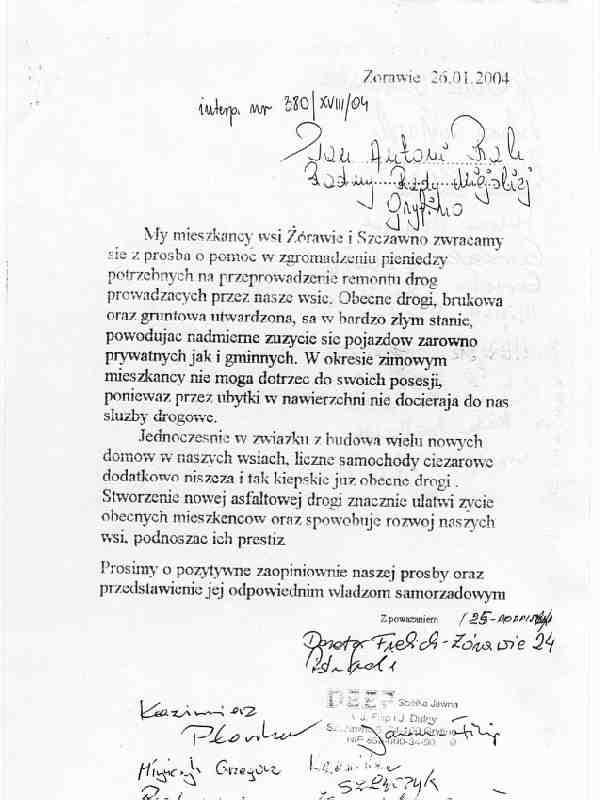 Zorawie 26.01.2004
interp. nr 380/XVIII/04
Pan Antoni
Radny Rady Miejskiej
Gryfino
My mieszkancy wsi Żórawie i Szczawno zwracamy
sie z prosba o pomoc w zgromadzeniu pieniedzy
potrzebnych na przeprowadzenie remontu drog
prowadzacych przez nasze wsie. Obecne drogi, brukowa
oraz gruntowa utwardzona, sa w bardzo złym stanie,
powodujac nadmierne zuzycie sie pojazdow zarowno
prywatnych jak i gminnych. W okresie zimowym
mieszkancy nie moga dotrzec do swoich posesji,
poniewaz przez ubytki w nawierzchni nie docieraja do nas
sluzby drogowe.
Jednoczesnie w zwiazku z budowa wielu nowych
domow w naszych wsiach, liczne samochody ciezarowe
dodatkowo niszcza i tak kiepskie juz obecne drogi .
Stworzenie nowej asfaltowej drogi znacznie ulatwi zycie
obecnych mieszkencow oraz spowobuje rozwoj naszych
wsi, podnoszac ich prestiz
Prosimy o pozytywne zaopiniownie naszej prosby oraz
przedstawienie jej odpowiednim wladzom samorzadowym
Z powazaniem
Dorota Frelich-Żórawie 24
Kazimierz
Spółka Jawna
J. Filip i J. Dubicy
Grzegorz